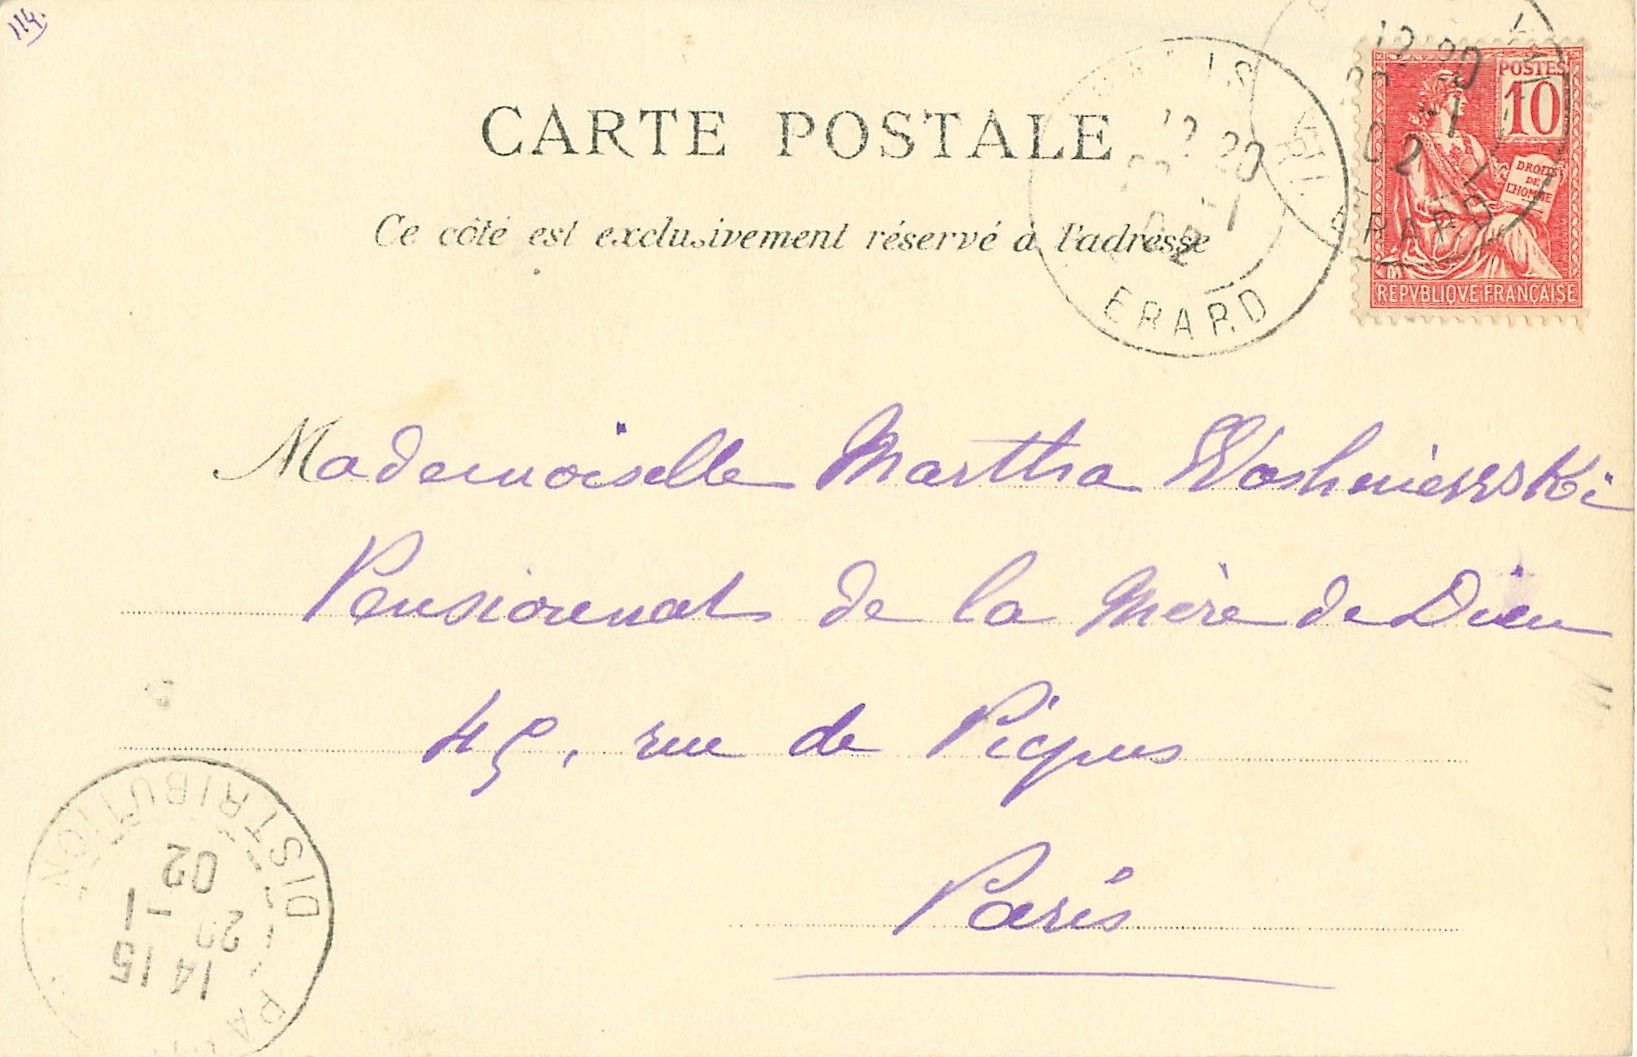 114.
CARTE POSTALE
Ce côté est exclusivement réservé à l'adresse
POSTES
10
DROITS
DE
L'HOMME
REPVBLIQVE FRANÇAISE
PARIS
12 20
-1
02
ERARD
12 20
-1
02
ERARD
Mademoiselle Martha
Pensionnat de la Mère de Dieu
45, rue de Picpus
Paris
PARIS
14 15
-1
02
DISTRIBUTION